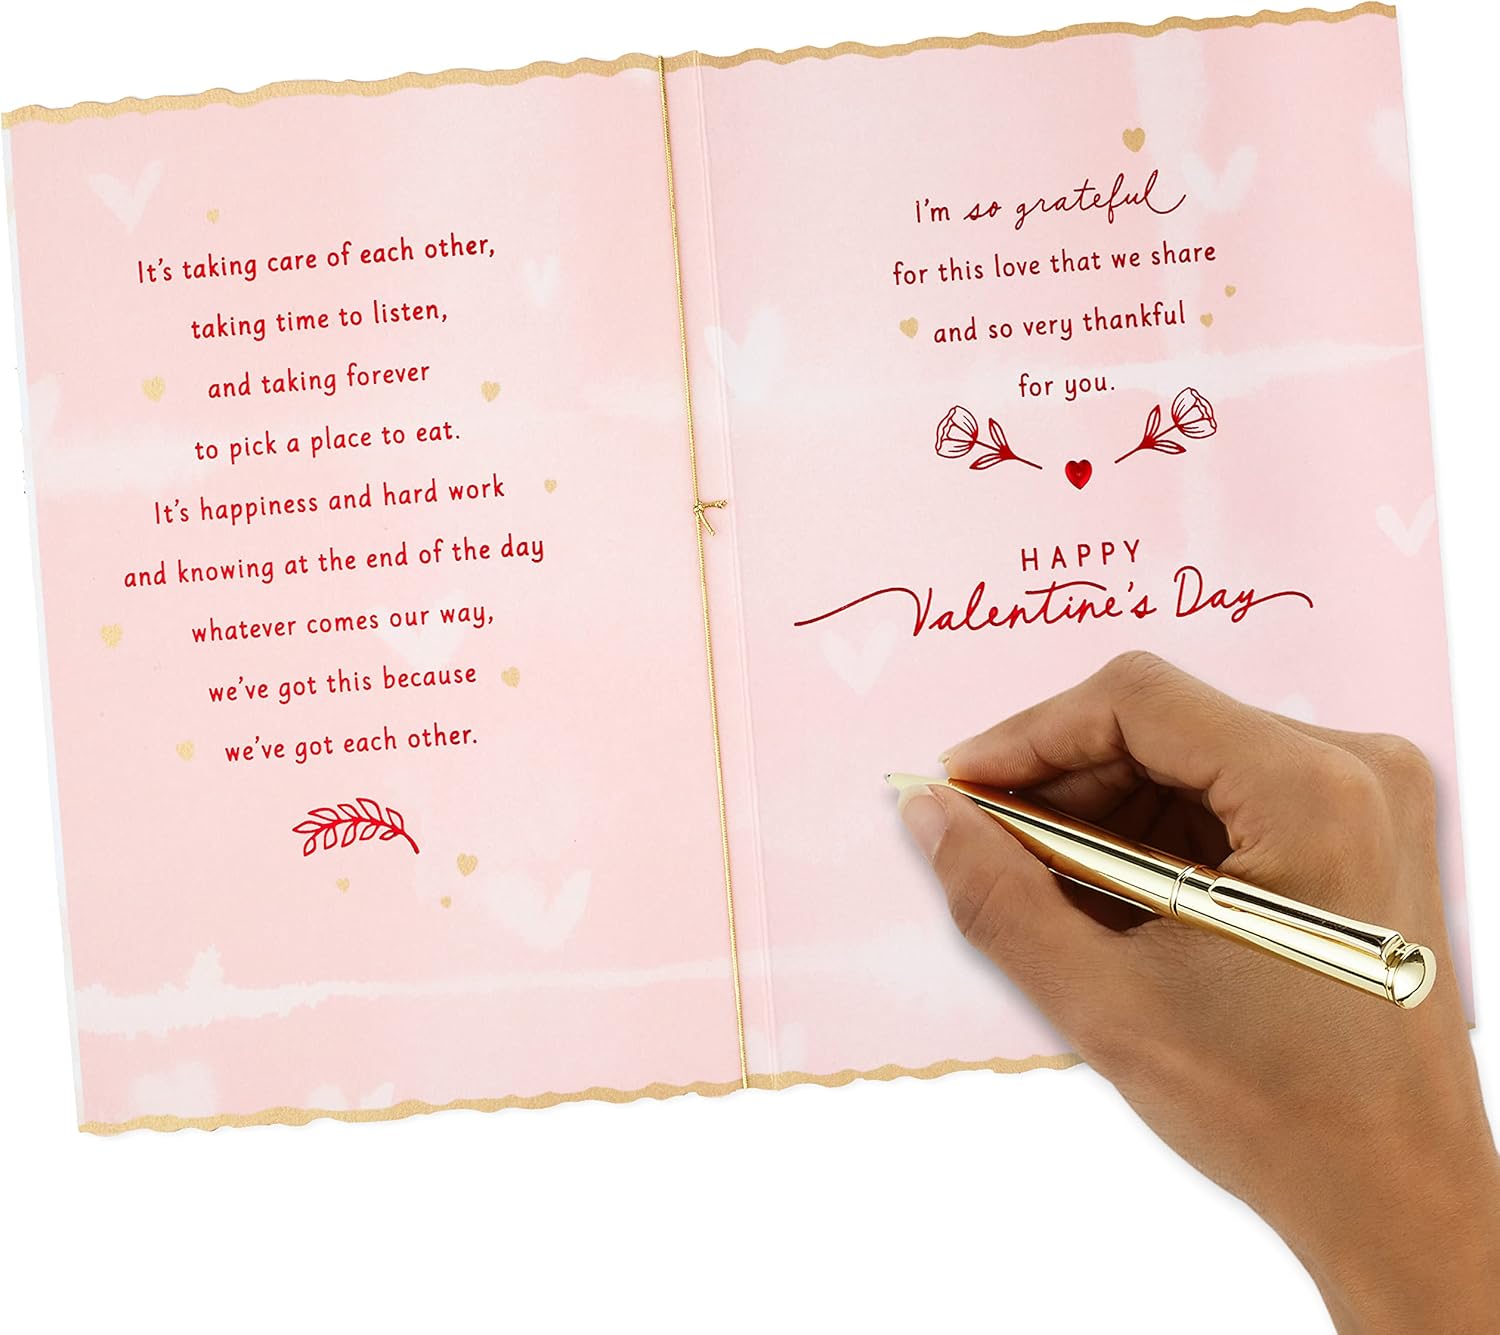 It's taking care of each other,
taking time to listen,
and taking forever
to pick a place to eat.
It's happiness and hard work
and knowing at the end of the day
whatever comes our way,
we've got this because
we've got each other.
I'm so grateful
for this love that we share
and so very thankful
for you.
HAPPY
Valentine's Day